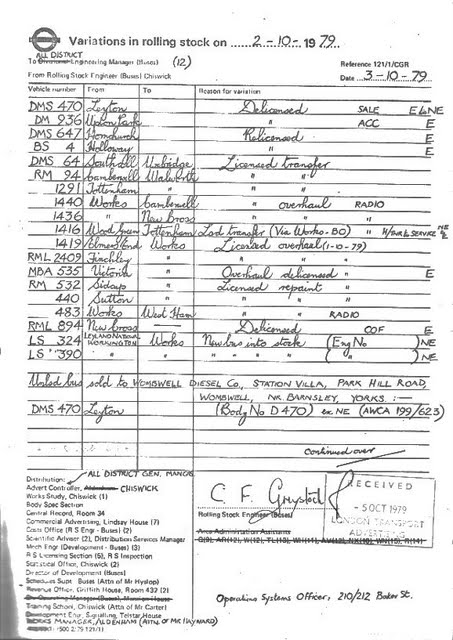 Variations in rolling stock on 2-10-1979
ALL DISTRICT
To Divisional Engineering Manager (Buses) (12)
Reference 121/1/CGR
From Rolling Stock Engineer (Buses) Chiswick
Date 3-10-79
Vehicle number From To Reason for variation
DMS 470 Leyton Delicensed SALE E & NE
DM 936 Upton Park " ACC E
DMS 647 Hornchurch Relicensed E
BS 4 Holloway " E
DMS 64 Southall Uxbridge Licensed transfer
RM 94 Camberwell Walworth " "
1291 Tottenham " " "
1440 Works Camberwell " overhaul RADIO
1436 " New Cross " " "
1416 Wood Green Tottenham Lsd transfer (Via Works-BO) " NE
1419 Elmers End Works Licensed overhaul (1-10-79)
RML 2409 Finchley " " "
MBA 535 Victoria " Overhaul delicensed " E
RM 532 Sidcup " Licensed repaint "
440 Sutton " " "
483 Works West Ham " " RADIO
RML 894 New Cross — Delicensed COF E
LS 324 LEYLAND NATIONAL WORKINGTON Works New bus into stock (Eng No ) NE
LS 390 " " " " " " ( " ) NE
Unlsd bus sold to WOMBWELL DIESEL Co., STATION VILLA, PARK HILL ROAD,
WOMBWELL, NR. BARNSLEY, YORKS. :—
DMS 470 Leyton (Body No D 470) ex NE (AWCA 199/623)
Continued over
Distribution: ALL DISTRICT GEN. MANGRS.
Advert Controller, CHISWICK
Works Study, Chiswick (1)
Body Spec Section
Central Record, Room 34
Commercial Advertising, Lindsay House (7)
Costs Office (R S Engr - Buses) (2)
Scientific Adviser (2), Distribution Services Manager
Mech Engr (Development) (3)
R S Licensing Section (5), R S Inspection
Statistical Officer (2)
Director of Development (Buses)
Schedules Supt Buses (Attn of Mr Hyslop)
Revenue Office, Griffith House, Room 432 (2)
Training School, Chiswick (Attn of Mr Carter)
Development Engr, Signalling, Telstar House
WORKS MANAGER, ALDENHAM (ATTN. OF MR HAYWARD)
C F Greystod
Rolling Stock Engineer (Buses)
Area Administration Assistants
RECEIVED
- 5 OCT 1979
LONDON TRANSPORT
ADVERTISING
Operating Systems Officer, 210/212 Baker St.